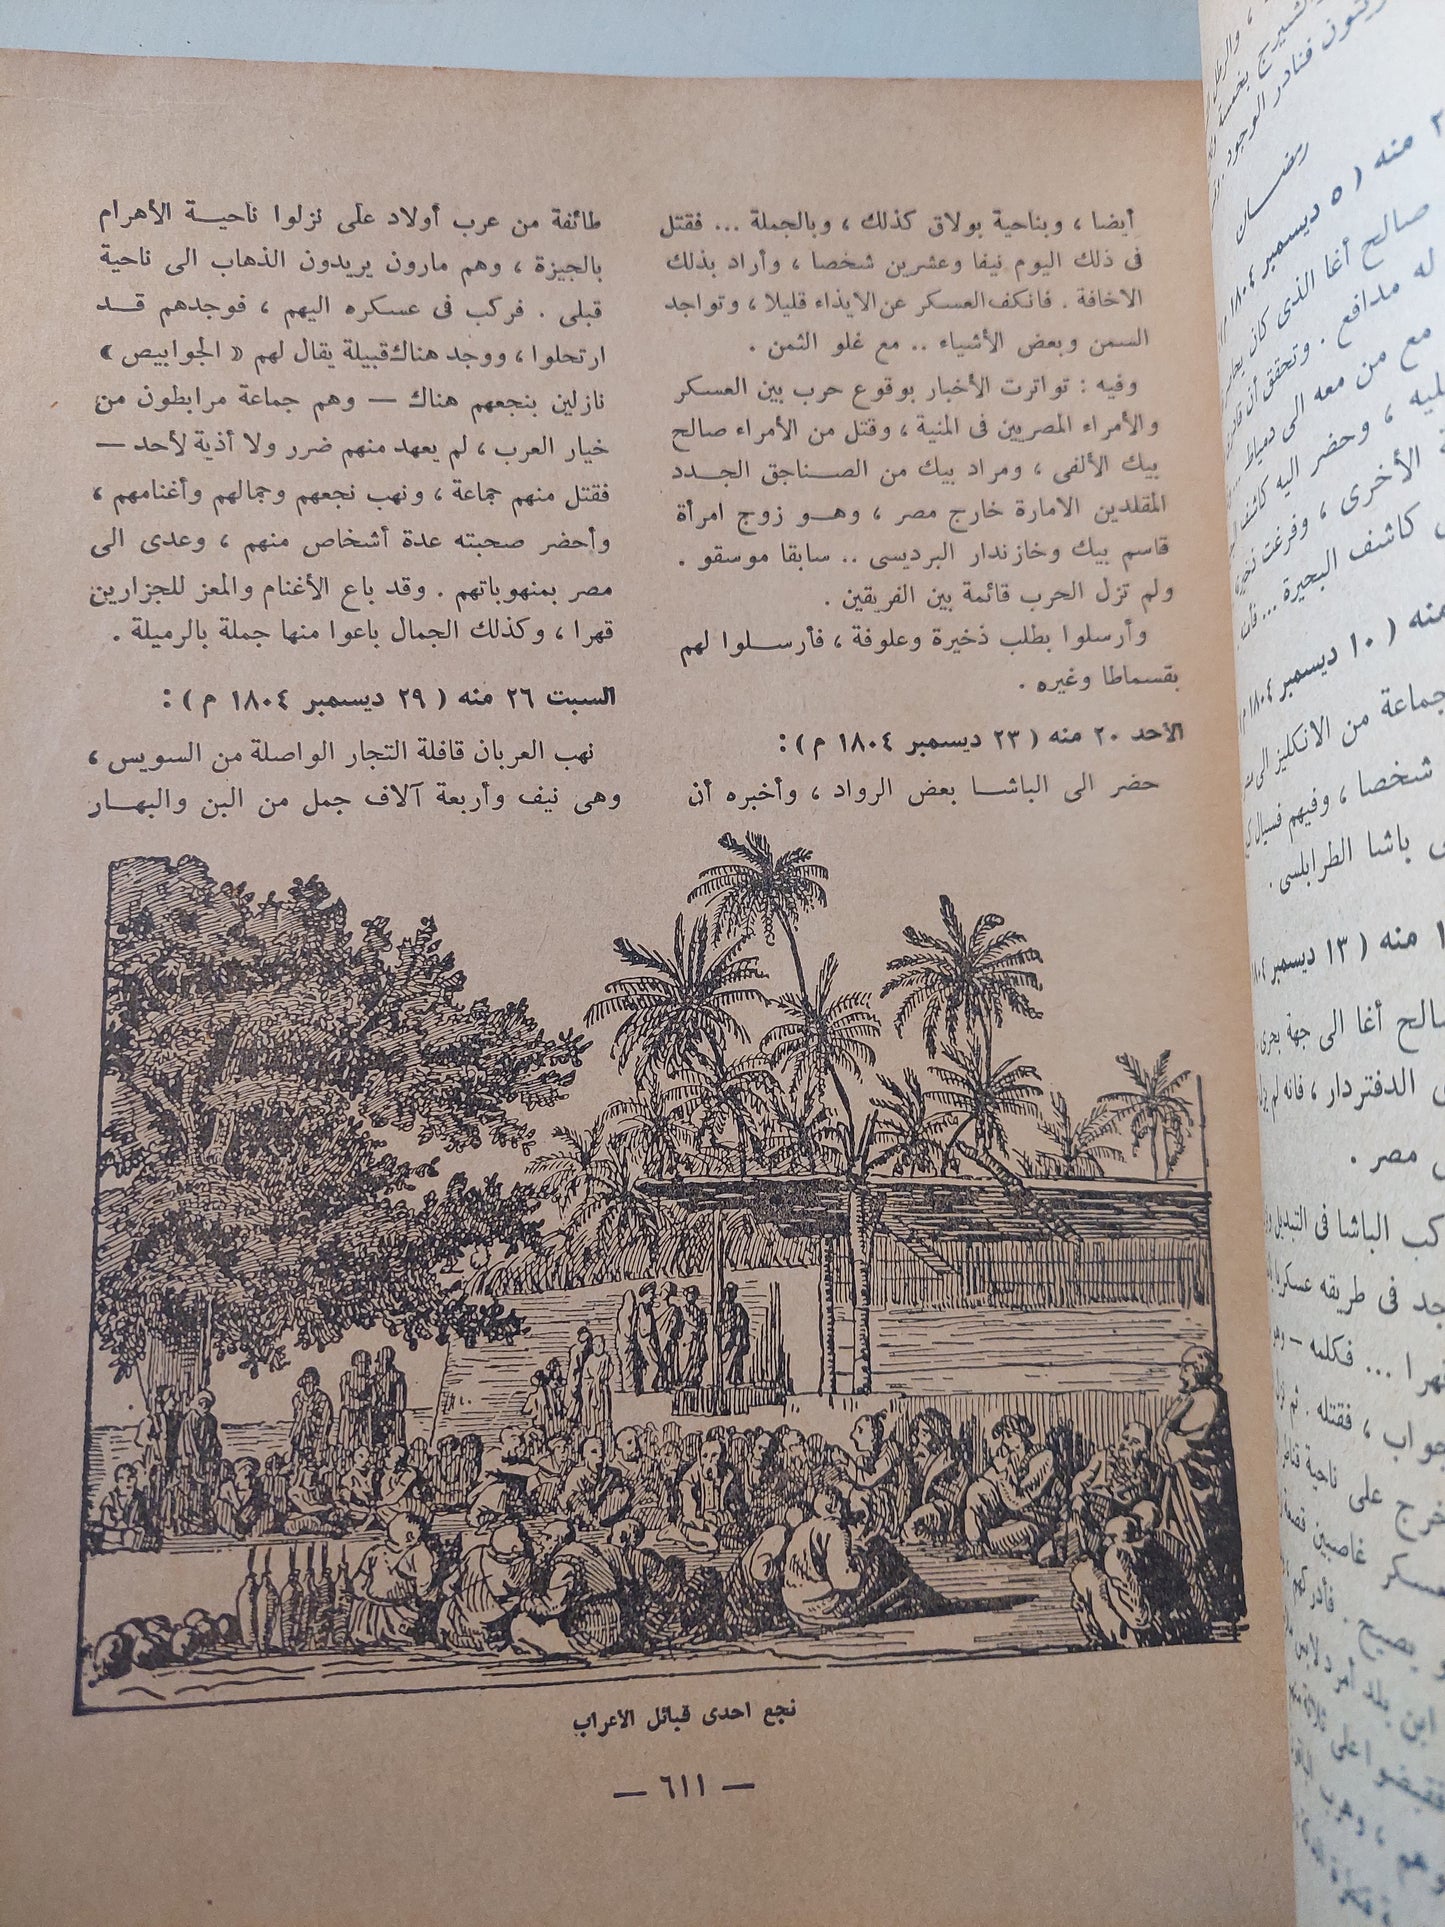 أيضا ، وبناحية بولاق كذلك ، وبالجملة ... فقتل
فى ذلك اليوم نيفا وعشرين شخصا ، وأراد بذلك
الاخافة . فانكف العسكر عن الايذاء قليلا ، وتواجد
السمن وبعض الأشياء .. مع غلو الثمن .
وفيه : تواترت الأخبار بوقوع حرب بين العسكر
والأمراء المصريين فى المنية ، وقتل من الأمراء صالح
بيك الألفى ، ومراد بيك من الصناجق الجدد
المقلدين الامارة خارج مصر ، وهو زوج امرأة
قاسم بيك وخازندار البرديسى .. سابقا موسقو .
ولم تزل الحرب قائمة بين الفريقين .
وأرسلوا بطلب ذخيرة وعلوفة ، فأرسلوا لهم
بقسماطا وغيره .
الأحد ٢٠ منه ( ٢٣ ديسمبر ١٨٠٤ م ) :
حضر الى الباشا بعض الرواد ، وأخبره أن
طائفة من عرب أولاد على نزلوا ناحية الأهرام
بالجيزة ، وهم مارون يريدون الذهاب الى ناحية
قبلى . فركب فى عسكره اليهم ، فوجدهم قد
ارتحلوا ، ووجد هناك قبيلة يقال لهم « الجوابيص »
نازلين بنجعهم هناك — وهم جماعة مرابطون من
خيار العرب ، لم يعهد منهم ضرر ولا أذية لأحد —
فقتل منهم جماعة ، ونهب نجعهم وجمالهم وأغنامهم ،
وأحضر صحبته عدة أشخاص منهم ، وعدى الى
مصر بمنهوباتهم . وقد باع الأغنام والمعز للجزارين
قهرا ، وكذلك الجمال باعوا منها جملة بالرميلة .
السبت ٢٦ منه ( ٢٩ ديسمبر ١٨٠٤ م ) :
نهب العربان قافلة التجار الواصلة من السويس ،
وهى نيف وأربعة آلاف جمل من البن والبهار
نجع احدى قبائل الاعراب
— ٦١١ —
رمضان
منه ( ٥ ديسمبر ١٨٠٤ م )
صالح أغا الذى كان
له مدافع . وتحقق أن
مع من معه الى دمياط
وحضر اليه كاشف
الأخرى ، وفرغت
كاشف البحيرة ...
منه ( ١٠ ديسمبر ١٨٠٤ م )
جماعة من الانكليز الى
شخصا ، وفيهم
باشا الطرابلسى .
منه ( ١٣ ديسمبر
أغا الى جهة بحرى
الدفتردار ، فانه لم
مصر .
الباشا فى التبديل
فى طريقه عسكريا
... فكلمه — وهو
، فقتله . ثم
على ناحية
غاصبين